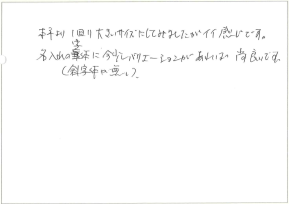 本キより1回り大きいサイズにしてみましたがイイ感じです。
名入れの字体に今少しバリエーションがあれば尚良いです。
(斜字体は無し)